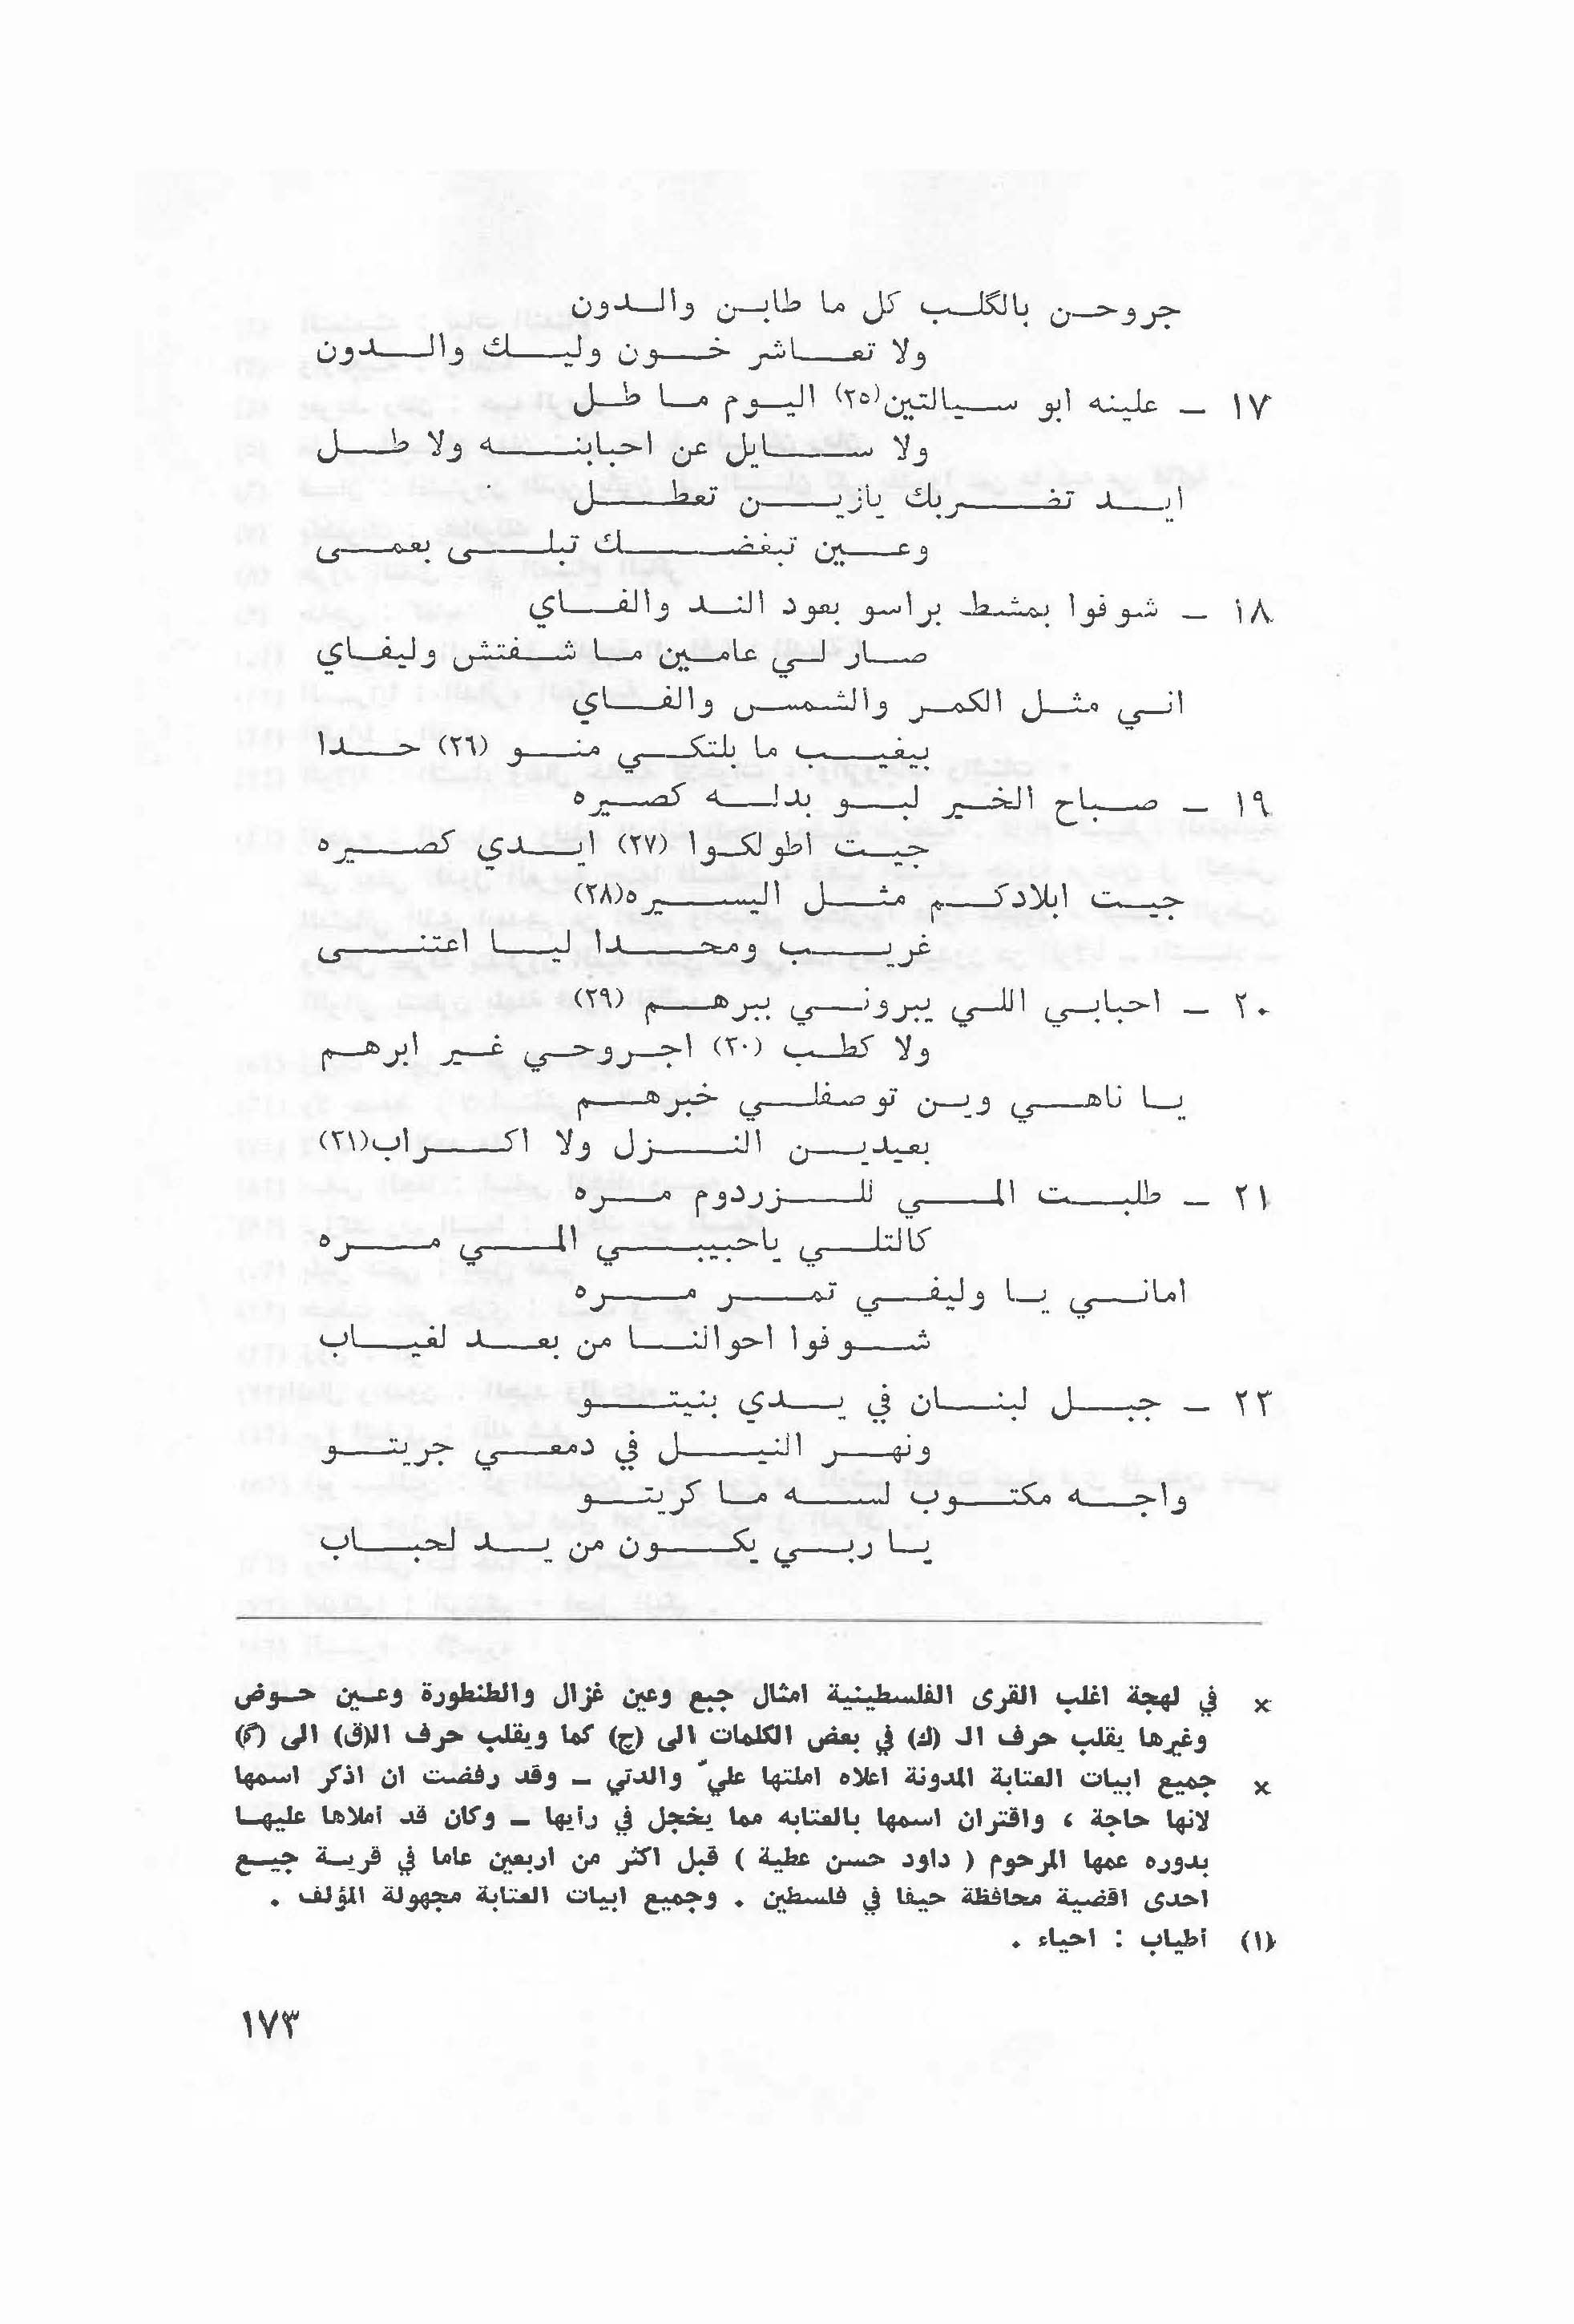 جروحن بالگلب كل ما طابن والدون
ولا تعاشر خون وليك والدون
١٧ ـ علينه ابو سيالتين(٢٥) اليوم ما طل
ولا سايل عن احبابنه ولا طل
ايد تضربك يازين تعطل
وعين تبغضك تبلى بعمى
١٨ ـ شوفوا بمشط براسو بعود الند والفاي
صار لي عامين ما شفتش وليفاي
اني مثل الكمر والشمس والفاي
بيغيب ما بلتكي منو (٢٦) حدا
١٩ ـ صباح الخير لبو بدله كصيره
جيت اطولكوا (٢٧) ايدي كصيره
جيت ابلادكم مثل اليسيره(٢٨)
غريب ومحدا ليا اعتنى
٢٠ ـ احبابي اللي يبروني ببرهم (٢٩)
ولا كطب (٣٠) اجروحي غير ابرهم
يا ناهي وين توصفلي خبرهم
بعيدين النزل ولا اكراب(٣١)
٢١ ـ طلبت المي للزردوم مره
كالتلي ياحبيبي المي مره
اماني يا وليفي تمر مره
شوفوا احوالنا من بعد لغياب
٢٣ ـ جبل لبنان في يدي بنيتو
ونهر النيل في دمعي جريتو
واجه مكتوب لسه ما كريتو
يا ربي يكون من يد لحباب
× في لهجة اغلب القرى الفلسطينية امثال جبع وعين غزال والطنطورة وعين حوض
وغيرها يقلب حرف الـ (ك) في بعض الكلمات الى (چ) كما ويقلب حرف ال(ق) الى (گ)
× جميع ابيات العتابة المدونة اعلاه املتها عليّ والدتي ـ وقد رفضت ان اذكر اسمها
لانها حاجة ، واقتران اسمها بالعتابه مما يخجل في رأيها ـ وكان قد أملاها عليها
بدوره عمها المرحوم ( داود حسن عطية ) قبل اكثر من اربعين عاما في قرية جبع
احدى اقضية محافظة حيفا في فلسطين . وجميع ابيات العتابة مجهولة المؤلف .
(١) أطياب : احياء .
١٧٣